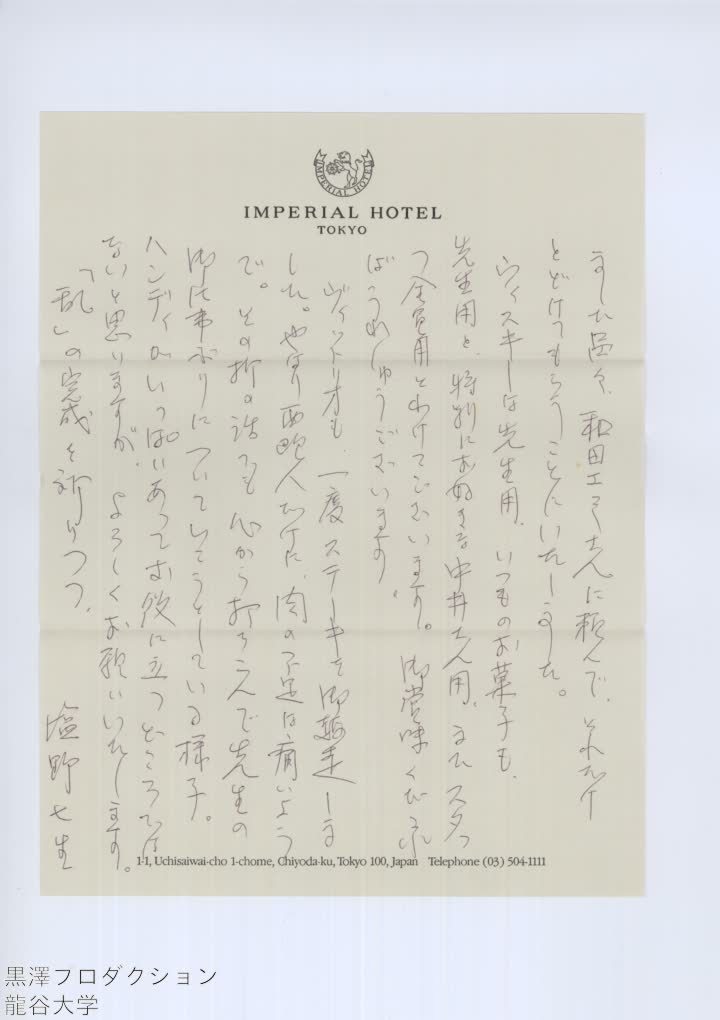 IMPERIAL HOTEL
IMPERIAL HOTEL
TOKYO
ました品々、和田エミさんに頼んで、それだけ
とどけてもらうことにいたしました。
ウィスキーは先生用、いつものお菓子も、
先生用と、特別にお好きな中井さん用、またスタッ
フ全員用とわけてございます。御賞味くだされ
ばうれしゅうございます。
ヴィットリオも、一度ステーキを御馳走しま
した。やはり西欧人だけに、肉の不足は痛いよう
で。その折の話でも心から打ちこんで先生の
御仕事ぶりについていこうとしている様子。
ハンディがいっぱいあってお役に立つどころでは
ないと思いますが、よろしくお願いいたします。
「乱」の完成を祈りつつ、
塩野七生
1-1, Uchisaiwai-cho 1-chome, Chiyoda-ku, Tokyo 100, Japan Telephone (03) 504-1111
黒澤プロダクション
龍谷大学